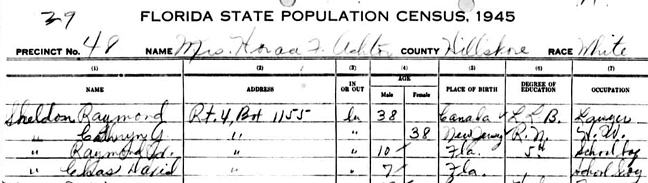 39
FLORIDA STATE POPULATION CENSUS, 1945
PRECINCT No. 48 NAME Mrs. Horace F. Ashton COUNTY Hillsboro RACE White
(1) (2) (3) (4) (5) (6) (7)
NAME ADDRESS IN OR OUT AGE Male Female PLACE OF BIRTH DEGREE OF EDUCATION OCCUPATION
Sheldon Raymond Rt. 4, Box 1155 In 38 Canada L L B. Lawyer
" Cathryn G. " " 38 New Jersey R. N. H. W.
" Raymond Jr. " " 10 Fla. 5th School boy
" Chas David " " 7 Fla. School boy